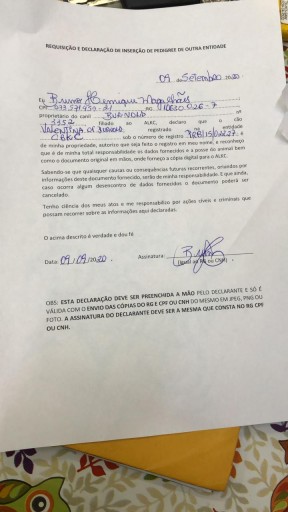 REQUISIÇÃO E DECLARAÇÃO DE INSERÇÃO DE PEDIGREE DE OUTRA ENTIDADE
09 de Setembro 2020
Eu Bruno Henrique Magalhães
CPF RG
proprietário do canil nº
3352, filiado ao ALKC, declaro que o cão
VALENTINA registrado entidade
CBKC sob o número de registro, é
de minha propriedade, autorizo que seja feito o registro em meu nome, e reconheço
que é de minha total responsabilidade os dados fornecidos e a posse do animal bem
como o documento original em mãos, onde forneço a cópia digital para o ALKC.
Sabendo-se que quaisquer causas ou consequências futuras recorrentes, oriundas por
informações deste documento fornecido, serão de minha responsabilidade. E que ainda,
caso ocorra algum desencontro de dados fornecidos o documento poderá ser
cancelado.
Tenho ciência dos meus atos e me responsabilizo por ações cíveis e criminais que
possam recorrer sobre as informações aqui declaradas.
O acima descrito é verdade e dou fé
Data: 09/09/2020. Assinatura:
(Igual ao RG ou CNH)
OBS: ESTA DECLARAÇÃO DEVE SER PREENCHIDA A MÃO PELO DECLARANTE E SÓ É
VÁLIDA COM O ENVIO DAS CÓPIAS DO RG E CPF OU CNH DO MESMO EM JPEG, PNG OU
FOTO. A ASSINATURA DO DECLARANTE DEVE SER A MESMA QUE CONSTA NO RG CPF
OU CNH.